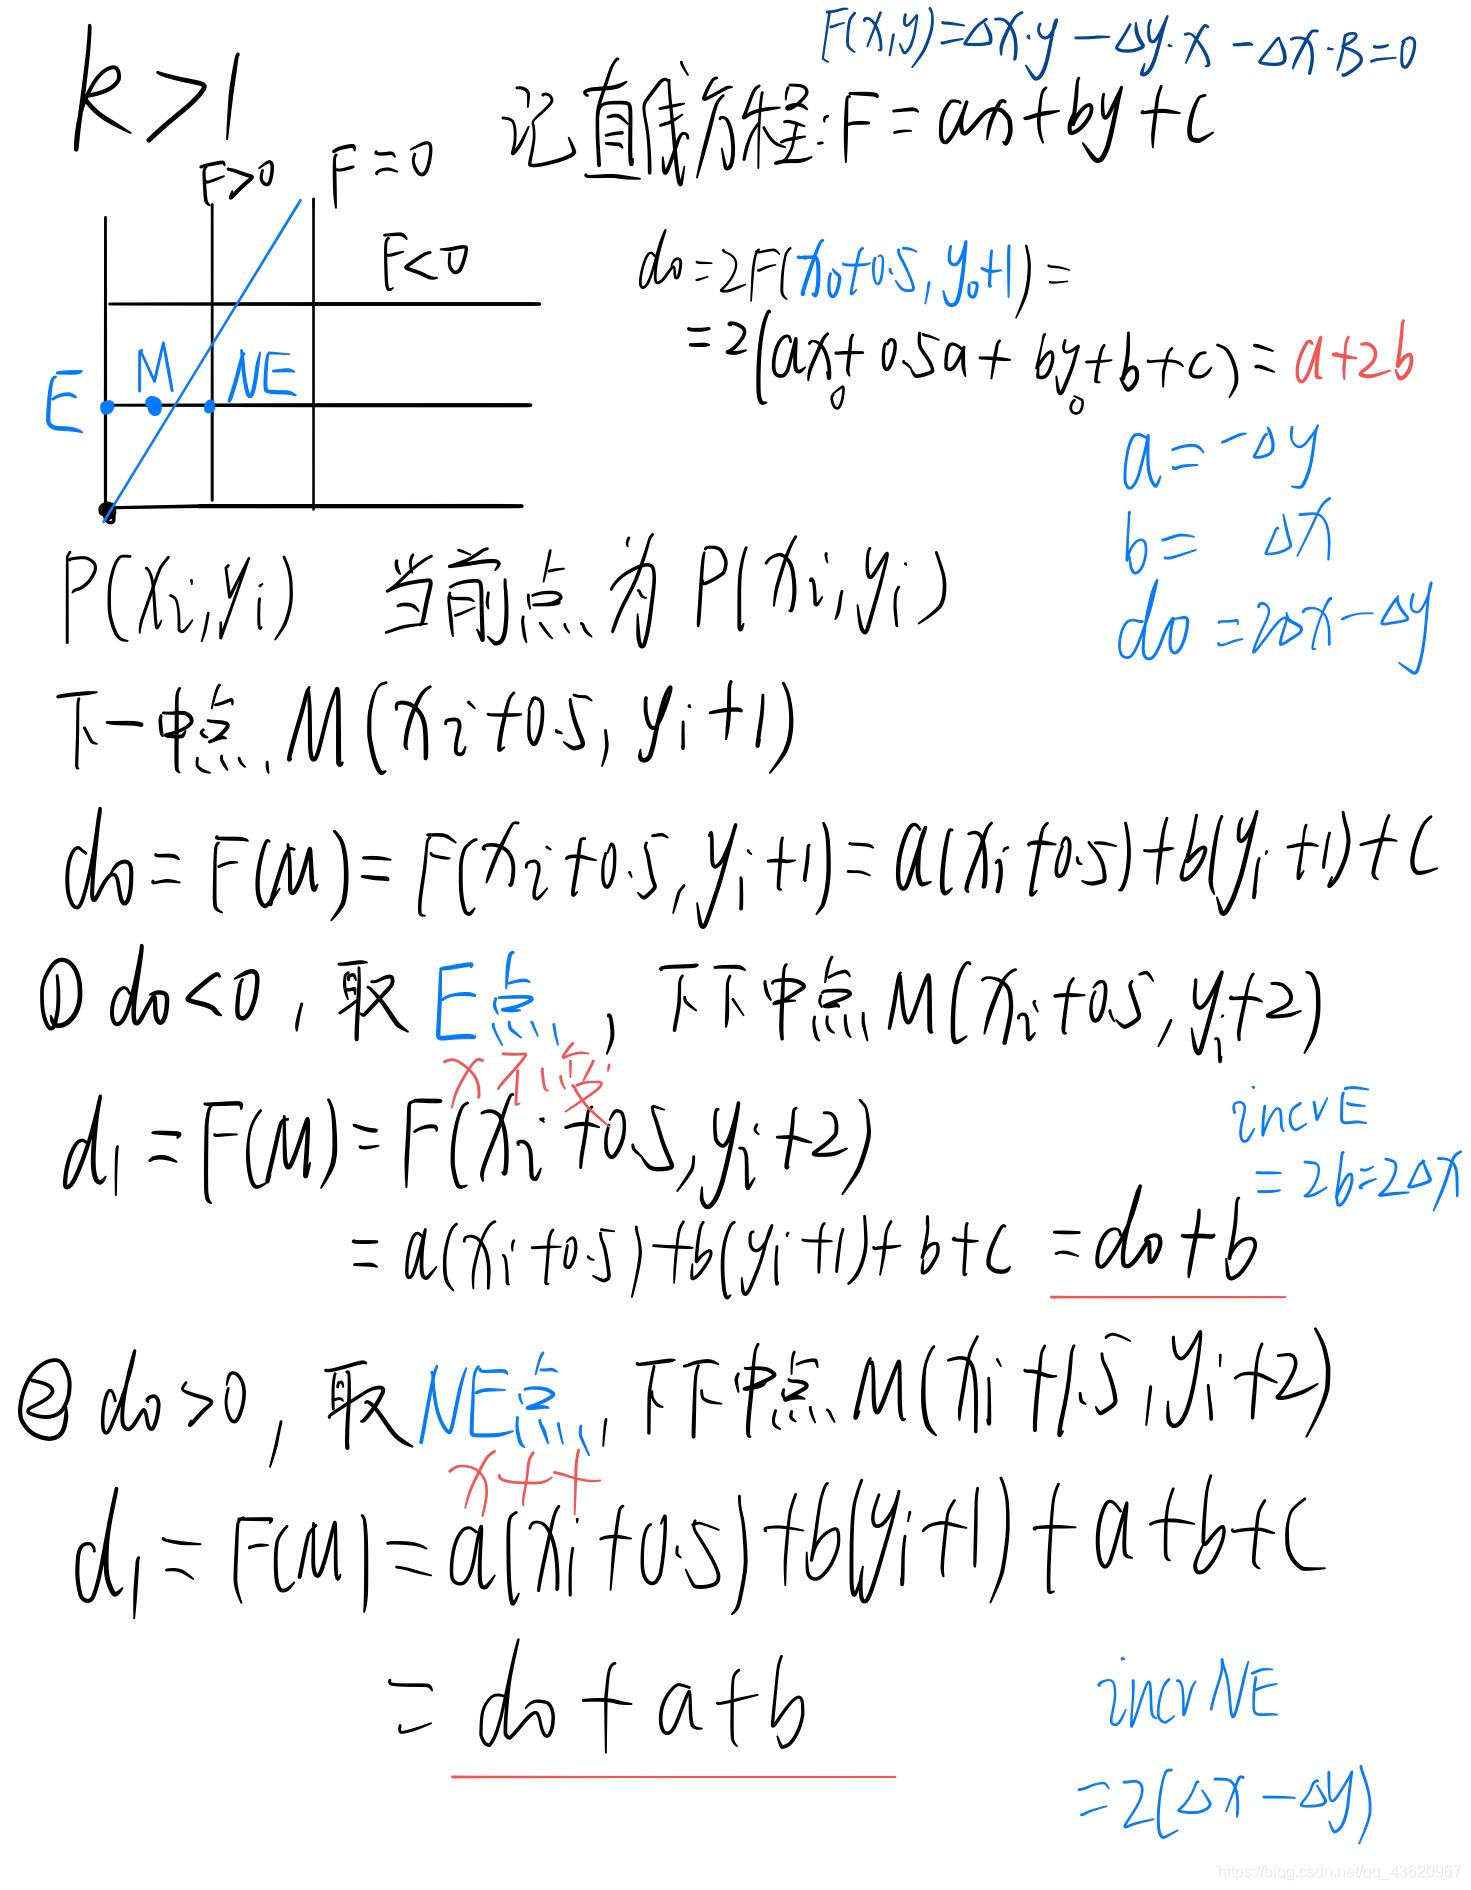 F(x,y)=Δx·y-Δy·x-Δx·B=0
k>1
记直线方程:F=ax+by+c
F>0
F=0
F<0
d0=2F(x0+0.5,y0+1)=
=2(ax0+0.5a+by0+b+c)=a+2b
E
M
NE
a=-Δy
b= Δx
d0=2Δx-Δy
P(xi,yi) 当前点为P(xi,yi)
下一中点M(xi+0.5,yi+1)
d0=F(M)=F(xi+0.5,yi+1)=a(xi+0.5)+b(yi+1)+c
①d0<0,取E点,下下中点M(xi+0.5,yi+2)
x不变
d1=F(M)=F(xi+0.5,yi+2)
incrE
=2b=2Δx
=a(xi+0.5)+b(yi+1)+b+c=d0+b
②d0>0,取NE点,下下中点M(xi+1.5,yi+2)
x++
d1=F(M)=a(xi+0.5)+b(yi+1)+a+b+c
=d0+a+b
incrNE
=2(Δx-Δy)
https://blog.csdn.net/qq_43620967